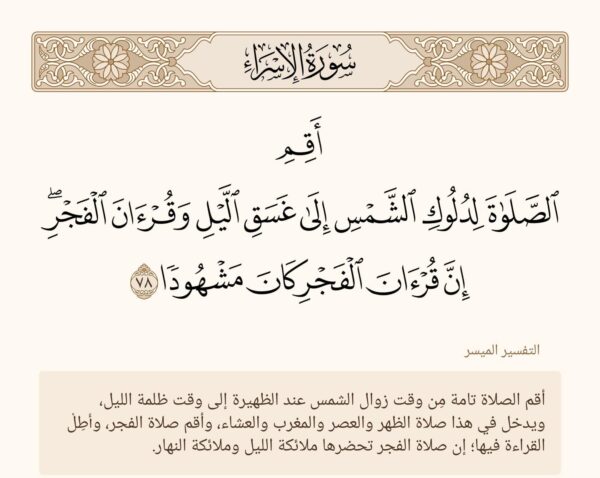 سُورَةُ الإِسْرَاءِ
أَقِمِ
ٱلصَّلَوٰةَ لِدُلُوكِ ٱلشَّمْسِ إِلَىٰ غَسَقِ ٱلَّيْلِ وَقُرْءَانَ ٱلْفَجْرِۖ
إِنَّ قُرْءَانَ ٱلْفَجْرِ كَانَ مَشْهُودٗا ٧٨
التفسير الميسر
أقم الصلاة تامة مِن وقت زوال الشمس عند الظهيرة إلى وقت ظلمة الليل،
ويدخل في هذا صلاة الظهر والعصر والمغرب والعشاء، وأقم صلاة الفجر، وأطِلْ
القراءة فيها؛ إن صلاة الفجر تحضرها ملائكة الليل وملائكة النهار.